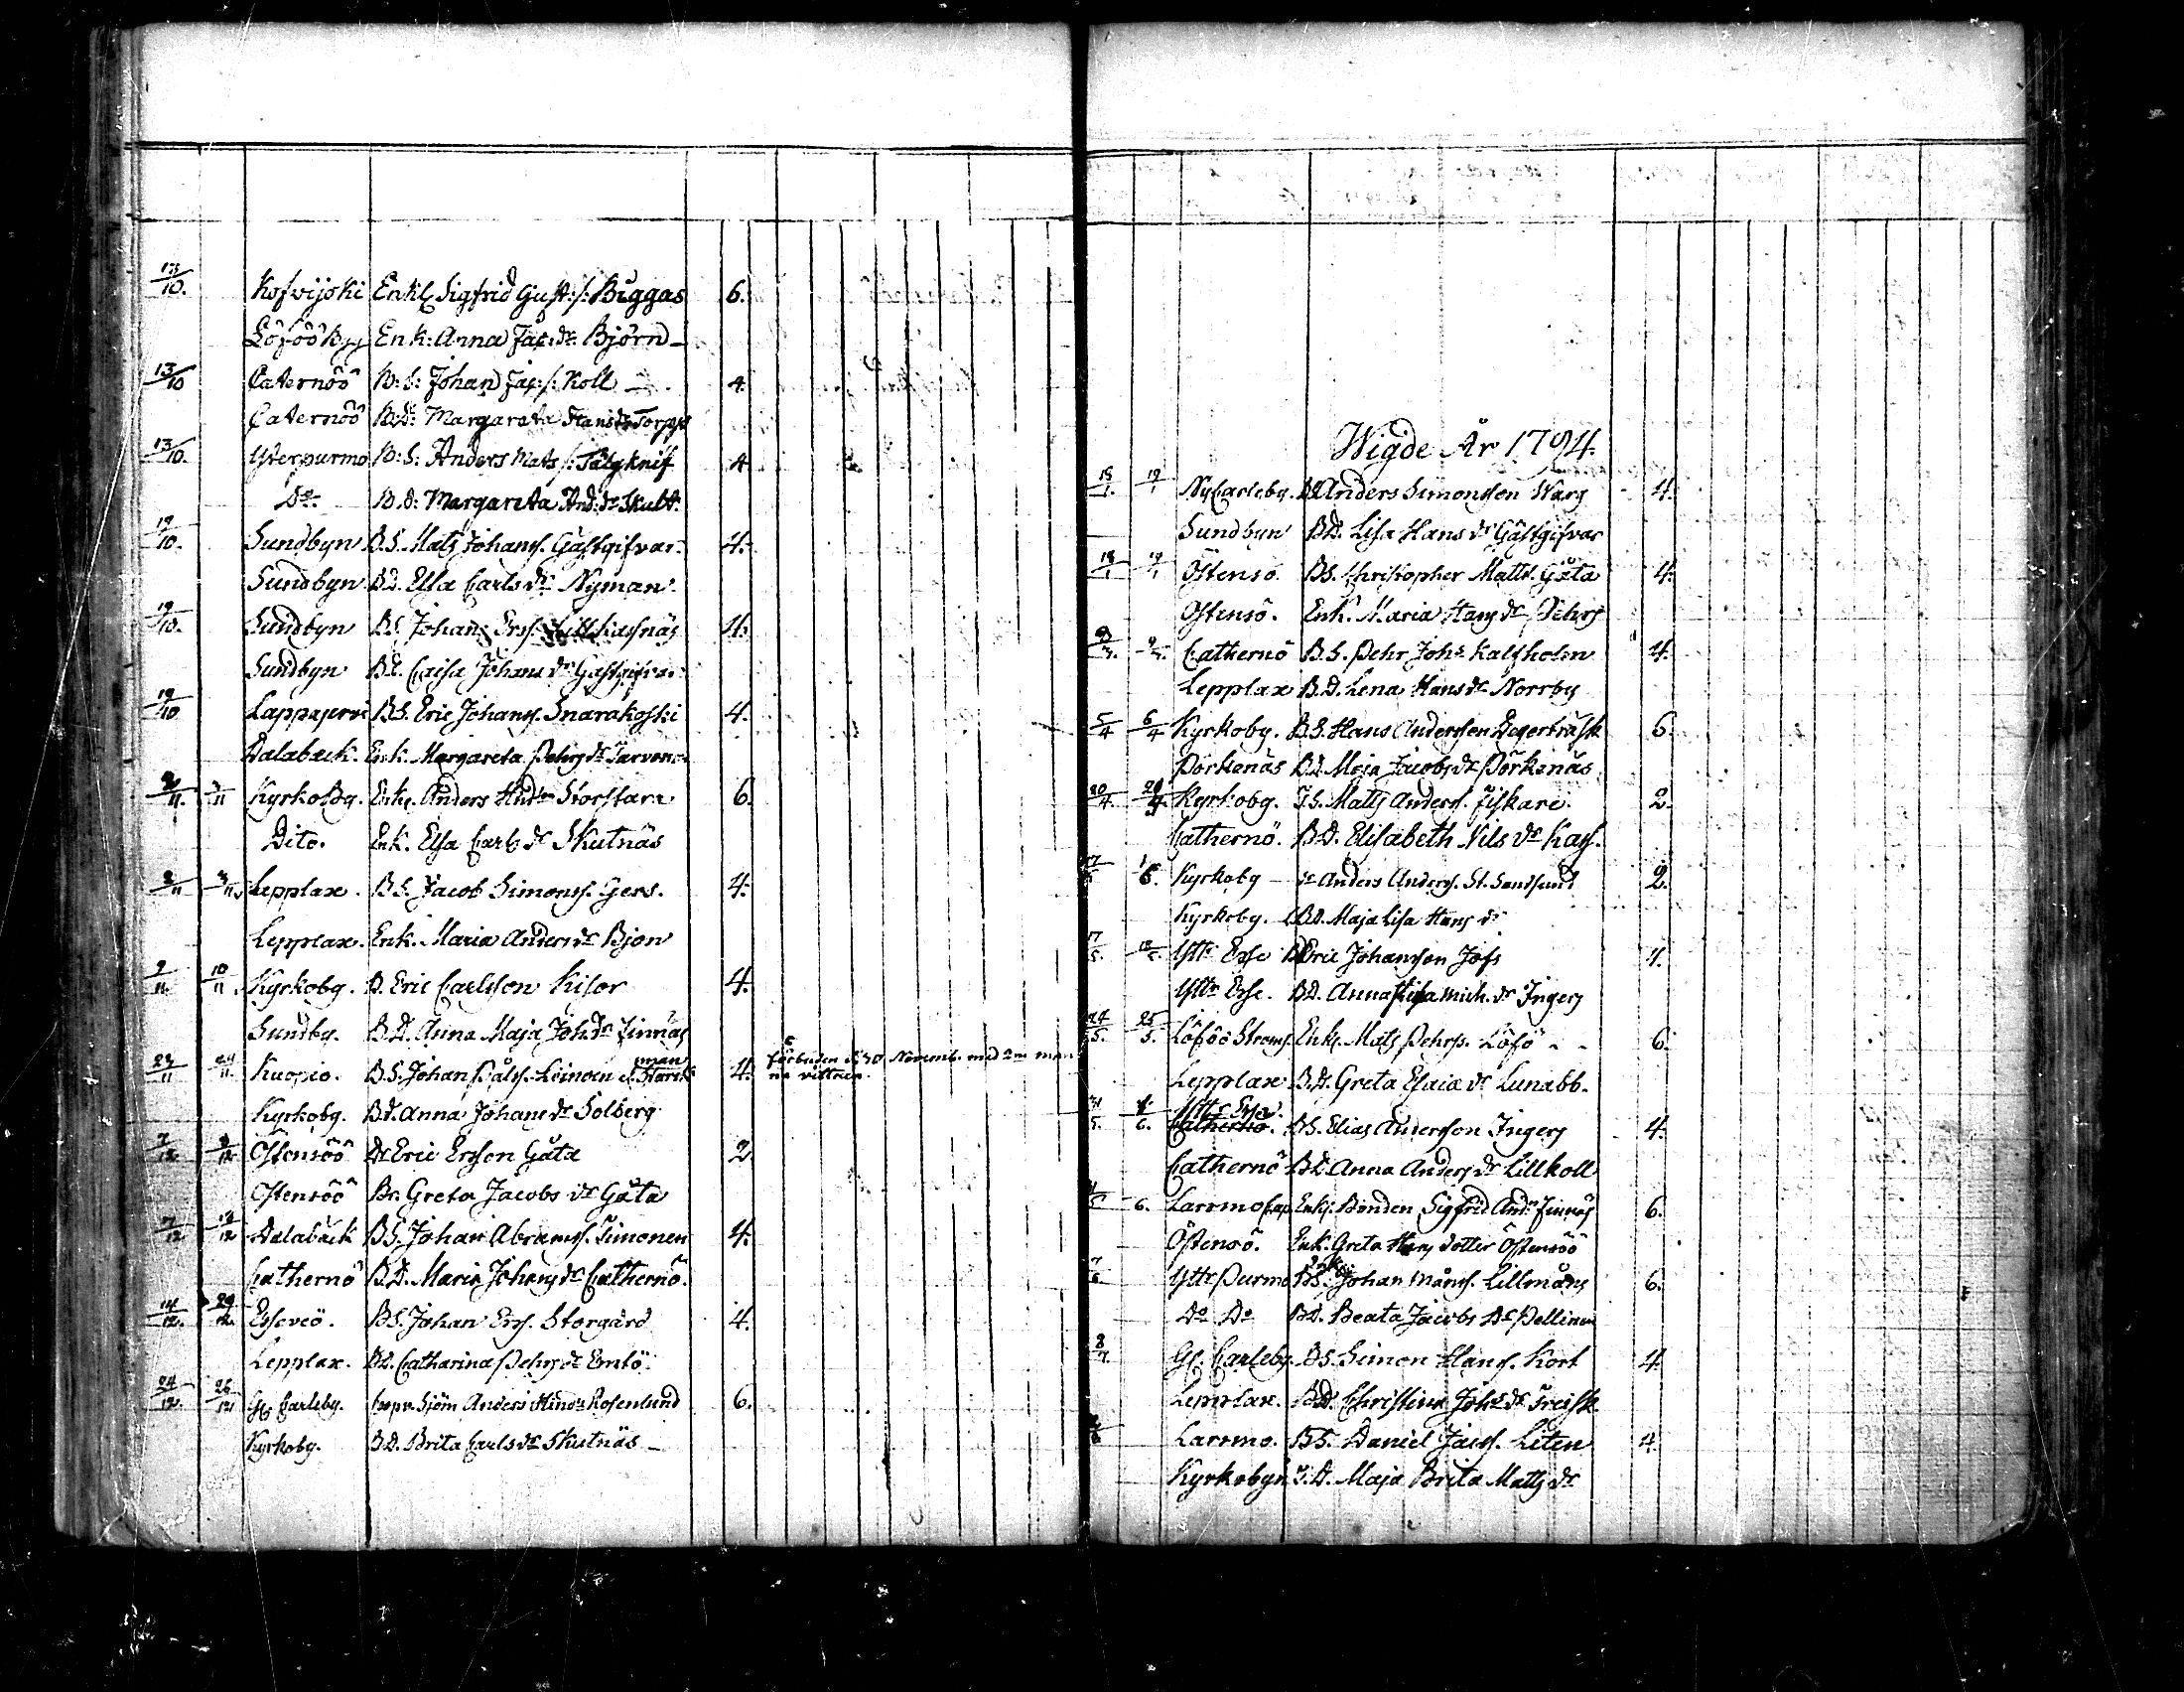 13/10. Kofvijoki Enkl. Sigfrid Gust:s: Biggas 6.
Löföö By Enk: Anna Jac:dr Björn
13/10 Caternöö B:S: Johan Jac:s: Koll 4.
Caternöö B:D: Margareta Hansdr Torpp
13/10. Ytterpurmo B:S: Anders Mats s: Tälgknif 4
Do B.d: Margareta And:dr Skult.
19/10. Sundbyn B.S. Mats Johans. Gästgifvar. 4.
Sundbyn B.D. Elsa Carls dr Nyman.
19/10. Sundbyn B.S. Johan Ers. 4.
Sundbyn B.D. Caisa Johans dr Gästgifvar
19/10 Lappajervi B.S. Eric Johans. Snarakoski 4.
Dalabäck. Enk. Margareta Pehrs dr
2/11. 3/11 Kyrkoby. Enkl. Anders 6.
Dito. Enk. Elsa Carls dr Skutnäs
2/11 3/11 Lepplax. B.S. Jacob Simons. Gers. 4.
Lepplax. Enk. Maria Anders dr Björn
9/11. 10/11 Kyrkoby. D. Eric Carlsson Kisor 4.
Sundby. B.D. Anna Maja Joh.dr Finnäs
23/11 24/11. Kuopio. B.S. Johan Påls. Leinoin el. Starckman 4. förbuden d. 30 Novemb. med 2ne man
na vittnen.
Kyrkoby. B.D. Anna Johans dr Solberg
7/12 8/12 Östensöö Dr Eric Ersson Gåta 2
Östensöö Greta Jacobs dr Gåta
7/12 12 Dalabäck B.S. Johan Abrams. Timonen 4.
Cathernö B.D. Maria Johans dr Cathernö.
14/12. 29/12. Esseveö. B.S. Johan Ers. Storgård 4.
Lepplax. B.D. Catharina Pehrs dr Emlö.
24/12. 26/12 Gl. Carleby. Anders Rosenlund 6.
Kyrkoby. B.D. Brita Carls dr Skutnäs
Wigde År 1794.
18/1. 19/1 Ny Carleby. Anders Simonsson Warg 4.
Sundbyn B.D. Lisa Hans dr Gästgifvar
18/1 19/1 Östensö. B.S. Christopher Matts. Gåta 4.
Östensö. Enk. Maria Hans dr Pehrs
Cathernö B.S. Pehr Johs Kalfholm 4.
Lepplax B.D. Lena Hans dr Norrby
5/4 6/4 Kyrkoby. B.S. Hans Andersson Degerträsk 6.
Pörkenäs B.D. Maja Jacobs dr Pörkenäs
20/4. Kyrkoby. Matts Anders. Fiskare. 2.
Cathernö. B.D. Elisabeth Nils dr Kass.
17 Kyrkoby dr Anders Anders. St. Sandsund 2.
Kyrkoby. B.D. Maja Lisa Hans dr
17/5. 18/5 Ytter Esse Eric Johansson Jofs 4.
Ytter Esse. B.D. Anna Lisa Mich. dr Ingers
24/5. 25/5. Löföö Ströms. Enkl. Mats Pehrs. Löfö 6.
Lepplax B.D. Greta Esaiæ dr Lunabb.
31/5. 1/6. Ytter Esse.
Cathernö. B.S. Elias Andersson Ingers 4.
Cathernö B.D. Anna Anders dr Lillkoll
5 6. Larsmo Cap. Enkl. Bonden Sigfrid And. Finnäs 6.
Östensö. Enk. Greta Hans dotter Östensöö
7/6 Ytter Purmo Enkl. Johan Måns. Lillmåns 6.
Do Do B.D. Beata Jacobs dr Pellinen
8/7. Gl. Carleby B.S. Simon Hans. Kort 4.
Lepplax. B.D. Christina Johs dr Treisk
Larsmo. B.S. Daniel Jacs. Liten 4.
Kyrkobyn D. Maja Brita Matts dr